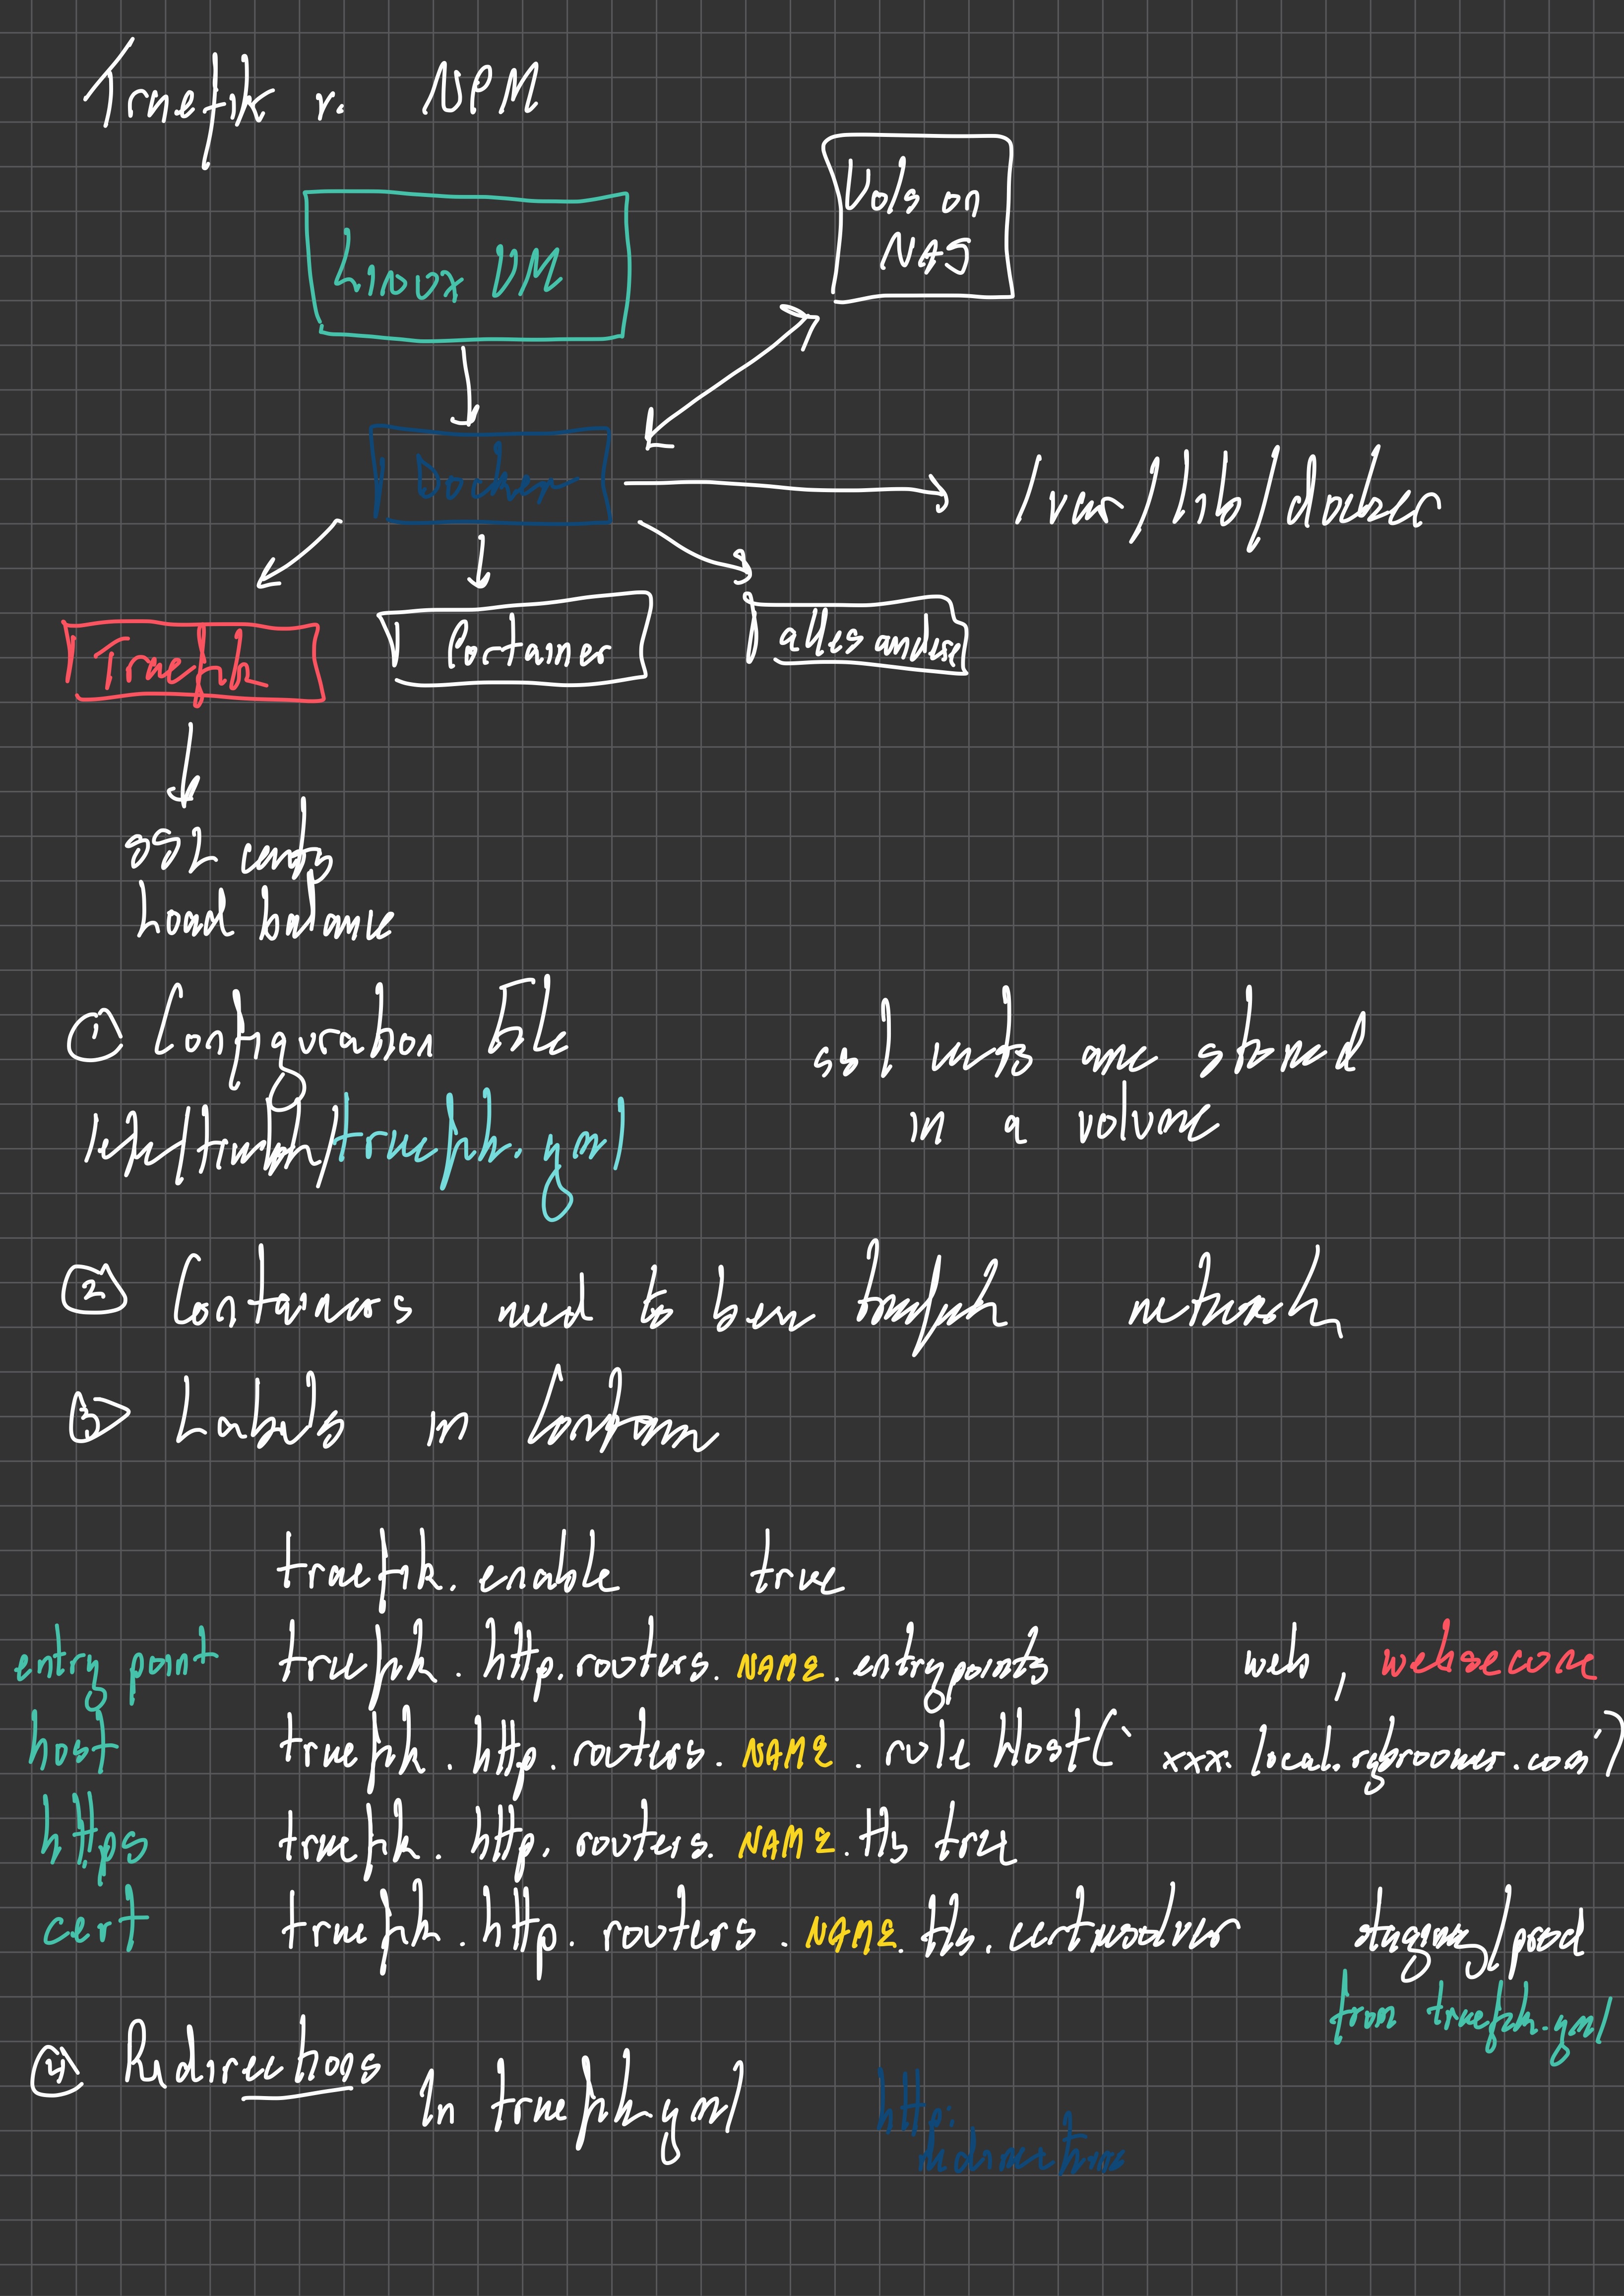 Traefik v. NPM
Vols on
NAS
Linux VM
Docker
/var/lib/docker
Traefik
Portainer
alles andere
SSL certs
Load balance
① Configuration File
ssl certs are stored
in a volume
/etc/traefik/traefik.yml
② Containers need to be in traefik network
③ Labels in Container
traefik.enable true
entry point traefik.http.routers.NAME.entrypoints web, websecure
host traefik.http.routers.NAME.rule Host(`xxx.local.
https traefik.http.routers.NAME.tls true
cert traefik.http.routers.NAME.tls.certresolver staging/prod
from traefik.yml
④ Redirections
In traefik.yml
http:
redirections